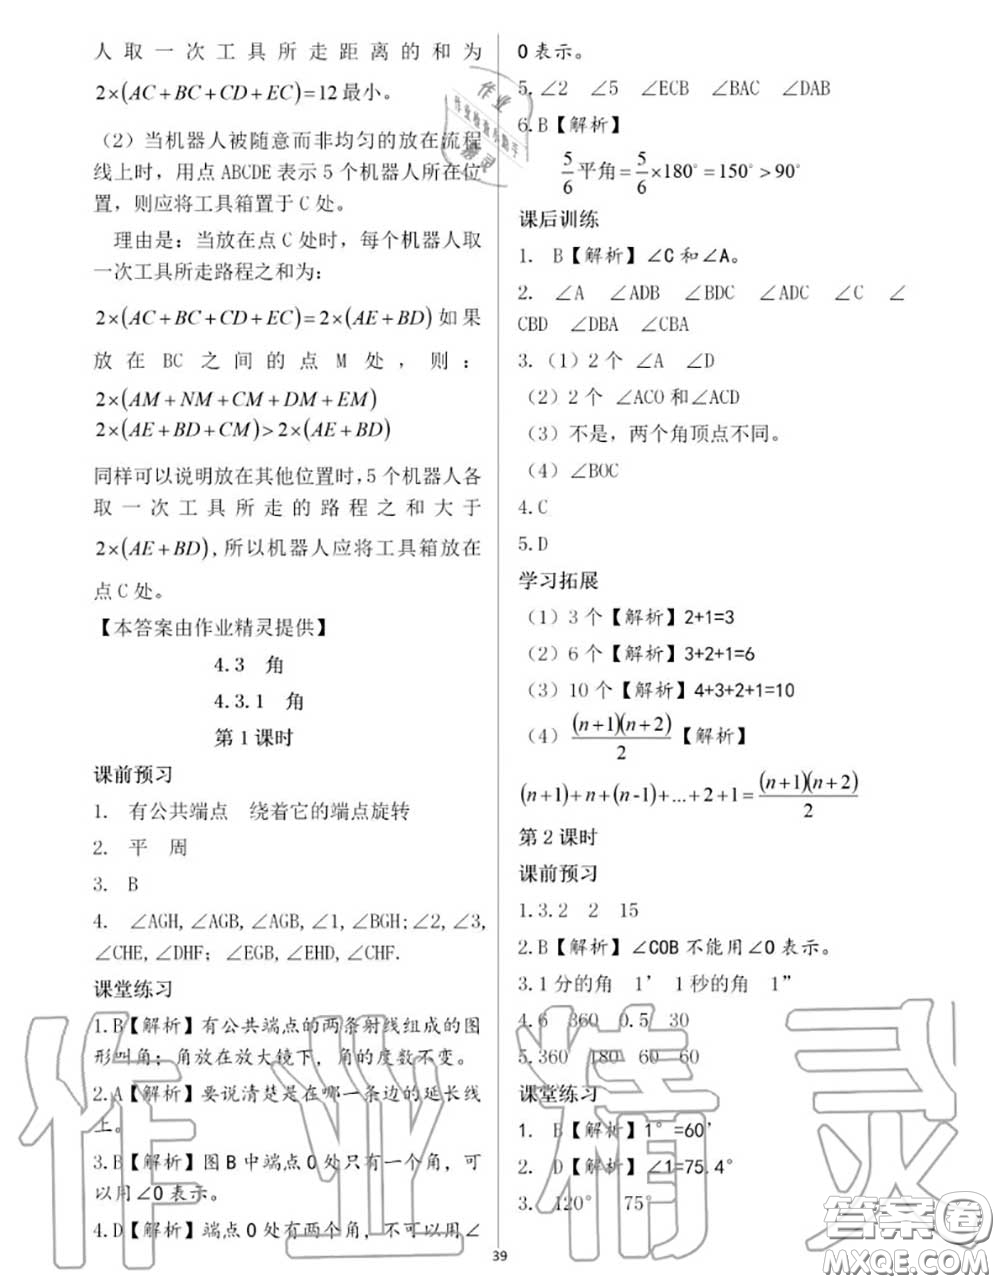 人取一次工具所走距离的和为
2×(AC+BC+CD+EC)=12最小。
（2）当机器人被随意而非均匀的放在流程
线上时，用点ABCDE表示5个机器人所在位
置，则应将工具箱置于C处。
理由是：当放在点C处时，每个机器人取
一次工具所走路程之和为：
2×(AC+BC+CD+EC)=2×(AE+BD)如果
放在BC之间的点M处，则：
2×(AM+NM+CM+DM+EM)
2×(AE+BD+CM)>2×(AE+BD)
同样可以说明放在其他位置时,5个机器人各
取一次工具所走的路程之和大于
2×(AE+BD),所以机器人应将工具箱放在
点C处。
【本答案由作业精灵提供】
4.3 角
4.3.1 角
第1课时
课前预习
1. 有公共端点 绕着它的端点旋转
2. 平 周
3. B
4. ∠AGH,∠AGB,∠AGB,∠1,∠BGH;∠2,∠3,
∠CHE,∠DHF；∠EGB,∠EHD,∠CHF.
课堂练习
1.B【解析】有公共端点的两条射线组成的图
形叫角；角放在放大镜下，角的度数不变。
2.A【解析】要说清楚是在哪一条边的延长线
上。
3.B【解析】图B中端点O处只有一个角，可
以用∠O表示。
4.D【解析】端点O处有两个角，不可以用∠
O表示。
5.∠2 ∠5 ∠ECB ∠BAC ∠DAB
6.B【解析】
5/6平角=5/6×180°=150°>90°
课后训练
1. B【解析】∠C和∠A。
2. ∠A ∠ADB ∠BDC ∠ADC ∠C ∠
CBD ∠DBA ∠CBA
3.（1）2个 ∠A ∠D
（2）2个 ∠ACO和∠ACD
（3）不是，两个角顶点不同。
（4）∠BOC
4.C
5.D
学习拓展
（1）3个【解析】2+1=3
（2）6个【解析】3+2+1=6
（3）10个【解析】4+3+2+1=10
（4）(n+1)(n+2)/2【解析】
(n+1)+n+(n-1)+...+2+1=(n+1)(n+2)/2
第2课时
课前预习
1.3.2 2 15
2.B【解析】∠COB不能用∠O表示。
3.1分的角 1′ 1秒的角 1”
4.6 360 0.5 30
5.360 180 60 60
课堂练习
1. B【解析】1°=60′
2. D【解析】∠1=75.4°
3. 120° 75°
39
作业精灵
作业
作业检查小助手
精灵
答案卷
MXQE.COM